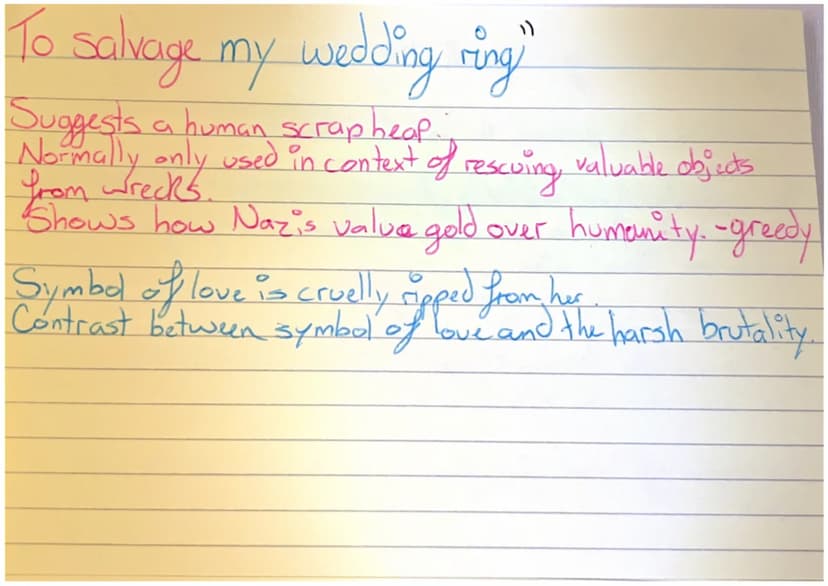 To salvage my wedding ring"
Suggests a human scrapheap.
Normally only used in context of rescuing valuable objects
from wrecks.
Shows how Nazis value gold over humanity. -greedy
Symbol of love is cruelly ripped from her.
Contrast between symbol of love and the harsh brutality.